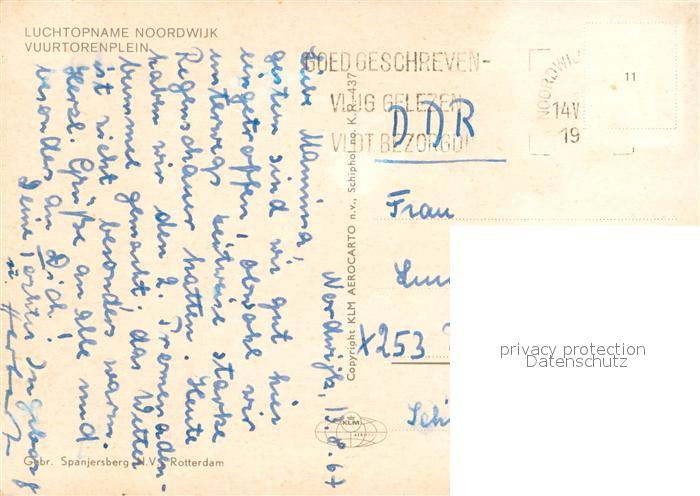 LUCHTOPNAME NOORDWIJK
VUURTORENPLEIN
GOED GESCHREVEN-
VLUG GELEZEN
VLOT BEZORGD!
NOORDWIJ
14 V
19
11
Copyright KLM AEROCARTO n.v., Schiphol no. K.R.-437
Noordwijk, 13.8.67
Liebe Mamina!
gestern sind wir gut hier
eingetroffen, obwohl wir
unterwegs zeitweise starke
Regenschauer hatten. Heute
haben wir den 2. Promenaden-
bummel gemacht, das Wetter
ist nicht besonders warm.
Herzl. Grüße an alle und
besonders an Dich!
Deine Tochter Ingeborg
u.
DDR
Frau
X253
Sch
KLM
Gebr. Spanjersberg N.V., Rotterdam
privacy protection
Datenschutz